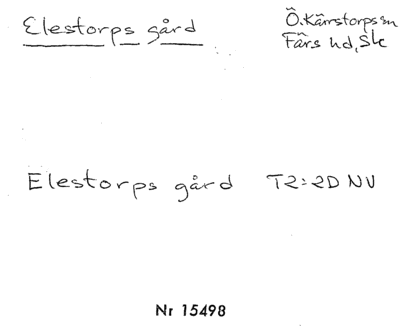 Elestorps gård
Ö. Kärrstorps sn
Färs hd, Sk
Elestorps gård T2:2D NV
Nr 15498